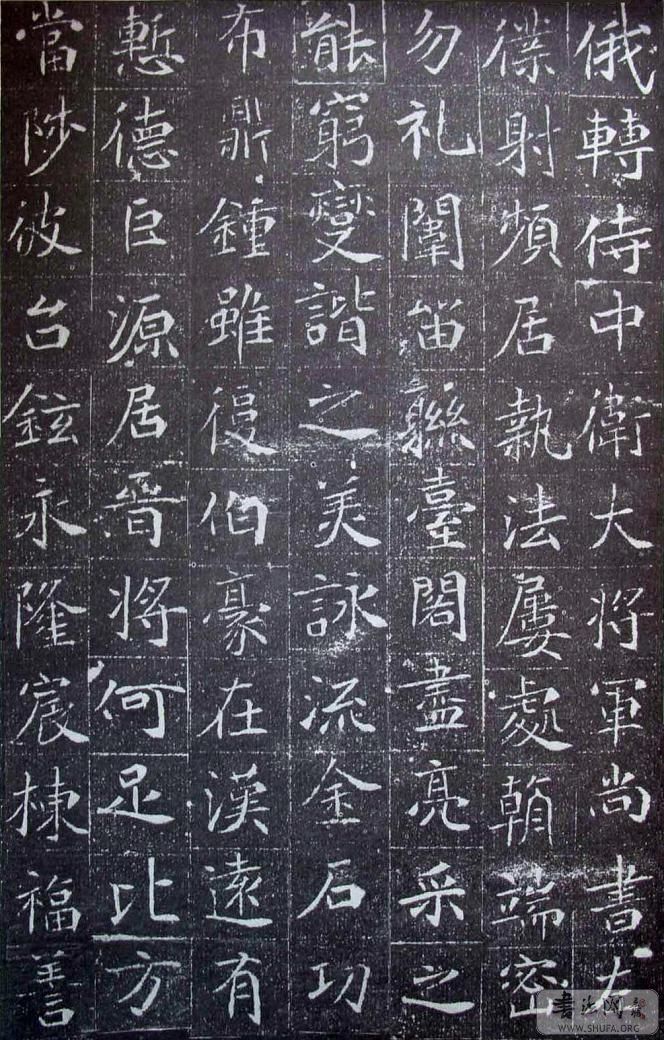 俄轉侍中衛大將軍尚書
僕射頻居執法屢處朝端密
勿礼闈臺閣盡亮采之
能窮變諧之美詠流金石功
布鼎鍾雖復伯豪在漢遠有
慙德巨源居晉將何足比方
當陟彼台鉉永隆宸棟福善
WWW.SHUFA.ORG